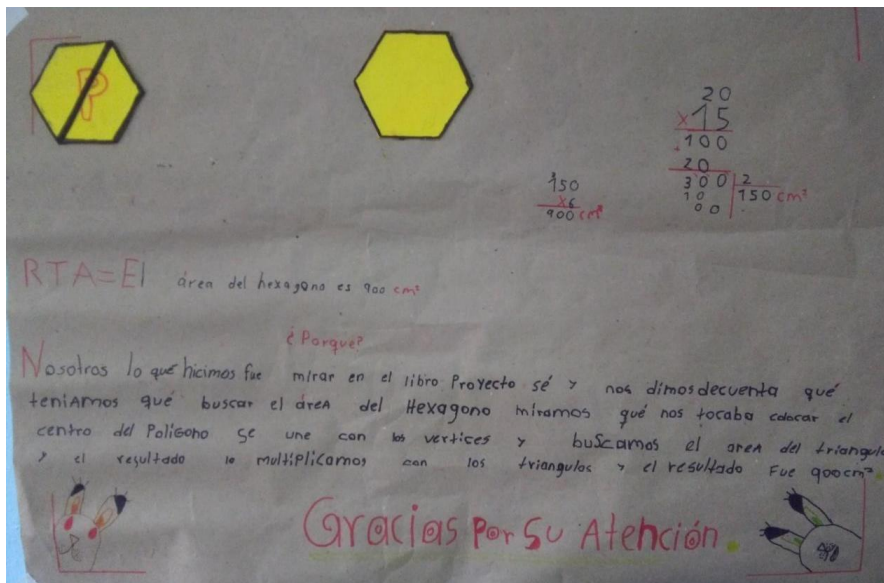 P
20
x 15
100
20
300 | 2
10 150 cm²
00
150
x6
900 cm²
RTA=El área del hexagono es 900 cm²
¿Porque?
Nosotros lo qué hicimos fue mirar en el libro Proyecto sé y nos dimos decuenta qué
teniamos qué buscar el área del Hexagono miramos qué nos tocaba colocar el
centro del Poligono se une con los vertices y buscamos el area del triangulo
y el resultado lo multiplicamos con los triangulos y el resultado Fue 900cm².
Gracias Por Su Atención.